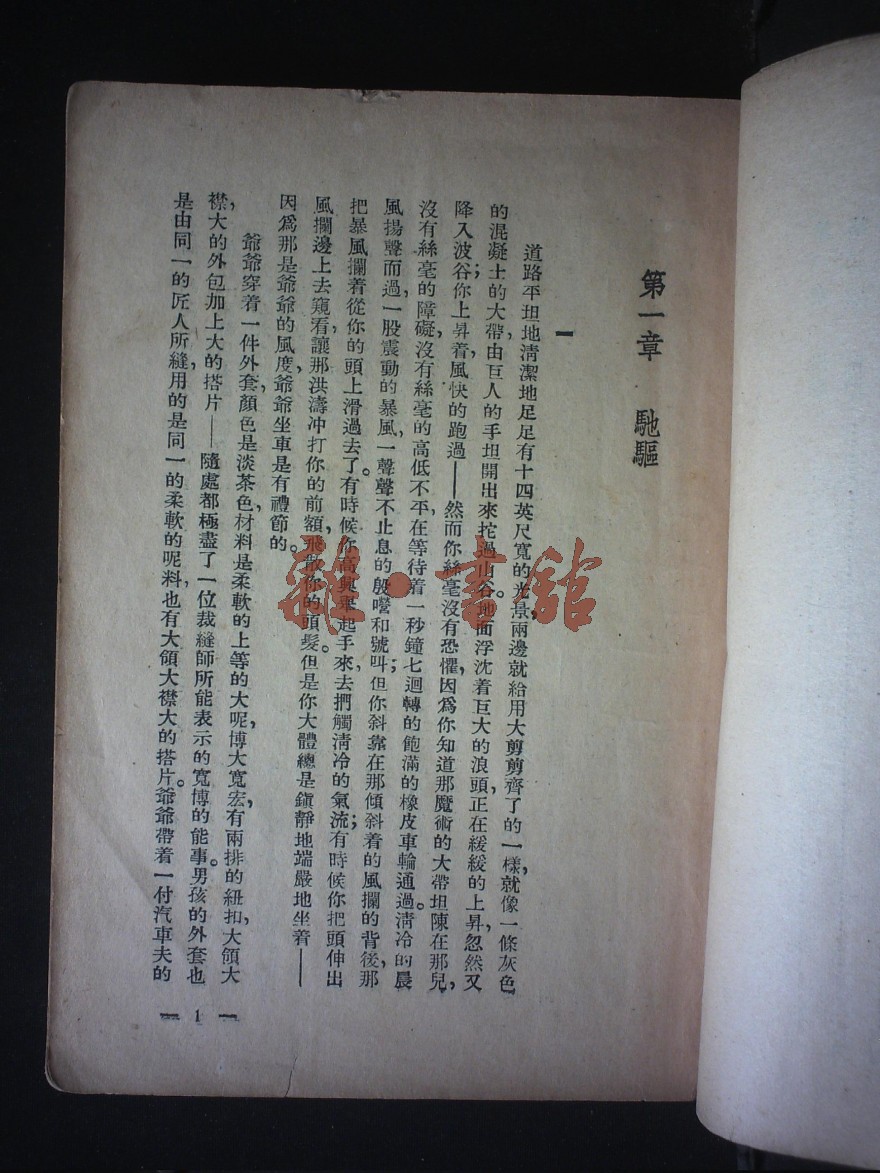 第一章　馳驅
一
道路平坦地清潔地足足有十四英尺寬的光景，兩邊就給用大剪剪齊了的一樣，就像一條灰色
的混凝土的大帶，由巨人的手坦開出來拕過山谷。地面浮沈着巨大的浪頭，正在緩緩的上昇，忽然又
降入波谷；你上昇着風快的跑過——然而你絲毫沒有恐懼，因爲你知道那魔術的大帶坦陳在那兒，
沒有絲毫的障礙，沒有絲毫的高低不平，在等待着一秒鐘七迴轉的飽滿的橡皮車輪通過。清冷的晨
風揚聲而過，一股震動的暴風，一聲聲不止息的殷嚶和號叫；但你斜靠在那傾斜着的風攔的背後，那
把暴風攔着從你的頭上滑過去了。有時候你高興舉起手來，去捫觸清冷的氣流；有時候你把頭伸出
風攔邊上去窺看，讓那洪濤冲打你的前額，飛散你的頭髮。但是你大體總是鎭靜地端嚴地坐着——
因爲那是爺爺的風度，爺爺坐車是有禮節的。
爺爺穿着一件外套，顏色是淡茶色，材料是柔軟的上等的大呢，博大寬宏，有兩排的紐扣，大領大
襟，大的外包加上大的搭片——隨處都極盡了一位裁縫師所能表示的寬博的能事。男孩的外套也
是由同一的匠人所縫，用的是同一的柔軟的呢料，也有大領大襟大的搭片。爺爺帶着一付汽車夫的
1
雜·書館